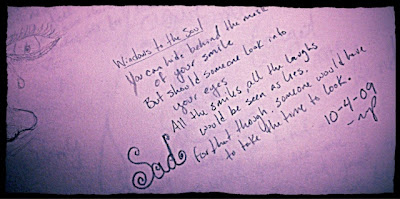 Windows to the Soul
You can hide behind the mask
of your smile
But should someone look into
your eyes
All the smiles, all the laughs
would be seen as lies.
For that though, someone would have
to take the time to look.
10-4-09
Sad